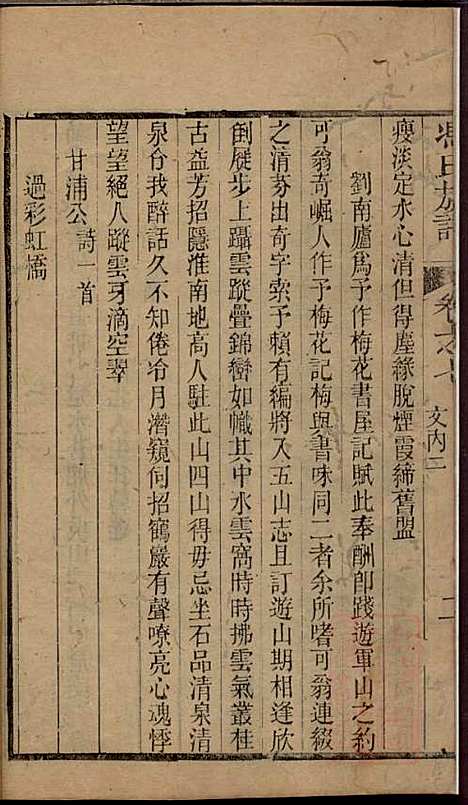 馮氏族譜 卷之七 文內二 二
瘦淡定水心清但得塵緣脫煙霞締舊盟
劉南廬為予作梅花書屋記賦此奉酬卽踐遊軍山之約
可翁奇崛人作予梅花記梅與書味同二者余所嗜可翁連綴
之清芬出奇字索予賴有編將入五山志且訂遊山期相逢欣
倒屣步上躡雲蹤疊錦巒如幟其中水雲窩時時拂雲氣叢桂
古益芳招隱淮南地高人駐此山四山得毋忌坐石品清泉清
泉令我醉話久不知倦冷月潛窺伺招鶴嚴有聲嘹亮心魂悸
望望絕人蹤雲牙滴空翠
甘浦公詩一首
過彩虹橋